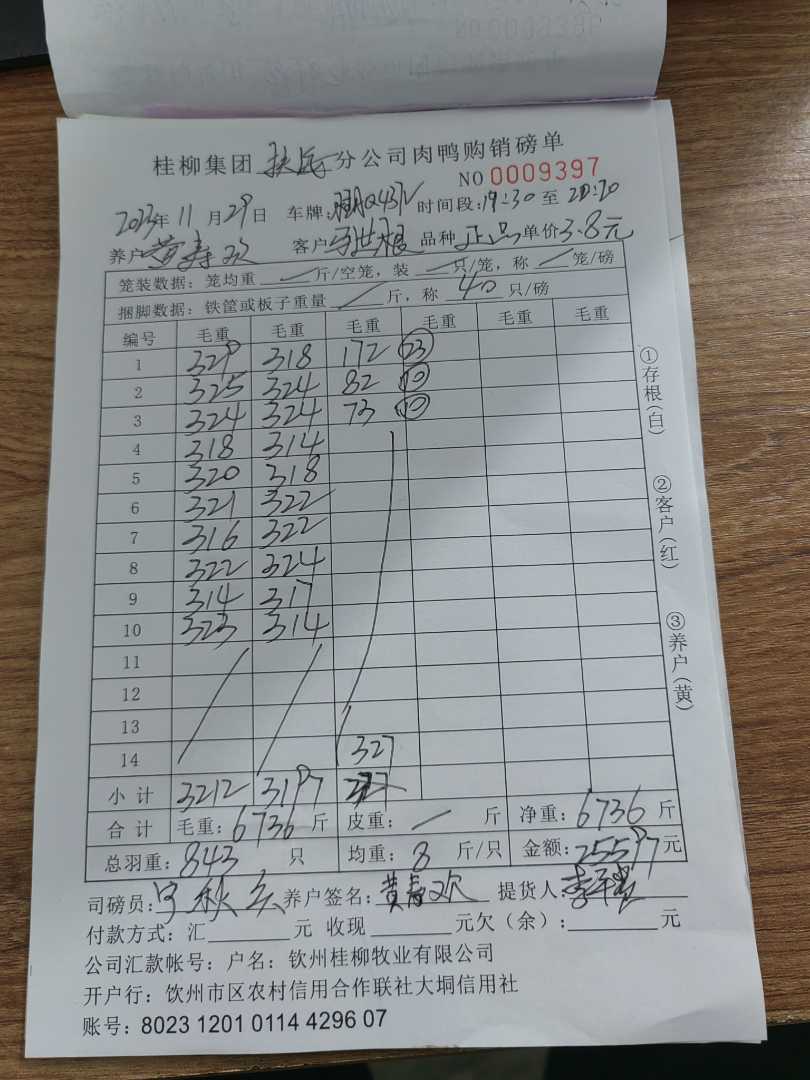 桂柳集团 扶绥 分公司肉鸭购销磅单
NO 0009397
2023年11月29日 车牌: 时间段:19:30至20:20
养户 黄寿欢 客户 马世根 品种 正品 单价3.8元
笼装数据: 笼均重 / 斤/空笼, 装 / 只/笼, 称 / 笼/磅
捆脚数据: 铁筐或板子重量 / 斤, 称 40 只/磅
编号 毛重 毛重 毛重 毛重 毛重 毛重
1 329 318 172 23
2 325 324 82 10
3 324 324 73 10
4 318 314
5 320 318
6 321 322
7 316 322
8 322 324
9 314 317
10 323 314
11
12
13
14 327
小计 3212 3197
合计 毛重: 6736 斤 皮重: / 斤 净重: 6736 斤
总羽重: 843 只 均重: 8 斤/只 金额: 25597元
司磅员: 养户签名: 黄寿欢 提货人:
付款方式: 汇 元 收现 元欠(余): 元
公司汇款帐号: 户名: 钦州桂柳牧业有限公司
开户行: 钦州市区农村信用合作联社大垌信用社
账号: 8023 1201 0114 4296 07
①存根(白)
②客户(红)
③养户(黄)